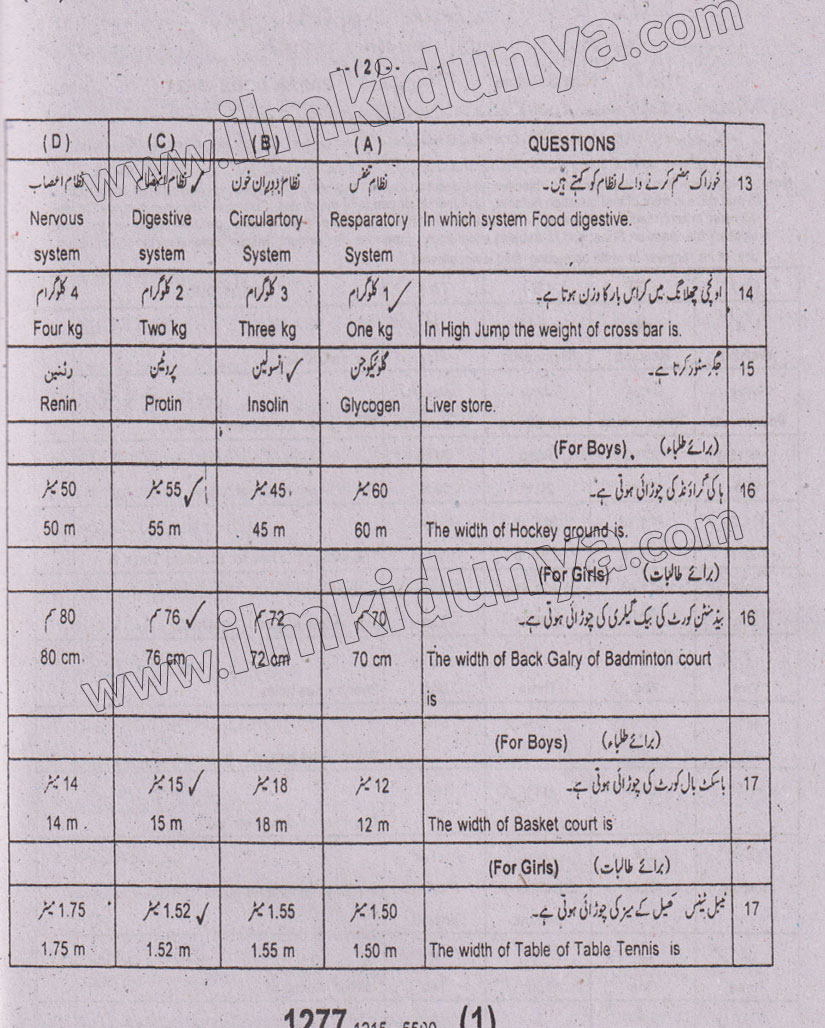 --(2)--
www.ilmkidunya.com
(D) (C) (B) (A) QUESTIONS
نظام اعصاب نظام انہضام نظام دوران خون نظام تنفس خوراک ہضم کرنے والے نظام کو کہتے ہیں۔ 13
Nervous Digestive Circulartory Resparatory In which system Food digestive.
system system System System
4 کلوگرام 2 کلوگرام 3 کلوگرام 1 کلوگرام اونچی چھلانگ میں کراس بار کا وزن ہوتا ہے۔ 14
Four kg Two kg Three kg One kg In High Jump the weight of cross bar is.
رینین پروٹین انسولین گلوئیکوجن جگر سٹور کرتا ہے۔ 15
Renin Protin Insolin Glycogen Liver store.
(For Boys) (برائے طلباء)
50 میٹر 55 میٹر 45 میٹر 60 میٹر ہاکی گراؤنڈ کی چوڑائی ہوتی ہے۔ 16
50 m 55 m 45 m 60 m The width of Hockey ground is.
(For Girls) (برائے طالبات)
www.ilmkidunya.com
80 سم 76 سم 72 سم 70 سم بیڈمنٹن کورٹ کی بیک گیلری کی چوڑائی ہوتی ہے۔ 16
80 cm 76 cm 72 cm 70 cm The width of Back Galry of Badminton court
is
(For Boys) (برائے طلباء)
14 میٹر 15 میٹر 18 میٹر 12 میٹر باسکٹ بال کورٹ کی چوڑائی ہوتی ہے۔ 17
14 m 15 m 18 m 12 m The width of Basket court is
(For Girls) (برائے طالبات)
1.75 میٹر 1.52 میٹر 1.55 میٹر 1.50 میٹر ٹیبل ٹینس کھیل کے میز کی چوڑائی ہوتی ہے۔ 17
1.75 m 1.52 m 1.55 m 1.50 m The width of Table of Table Tennis is
1277 (1)